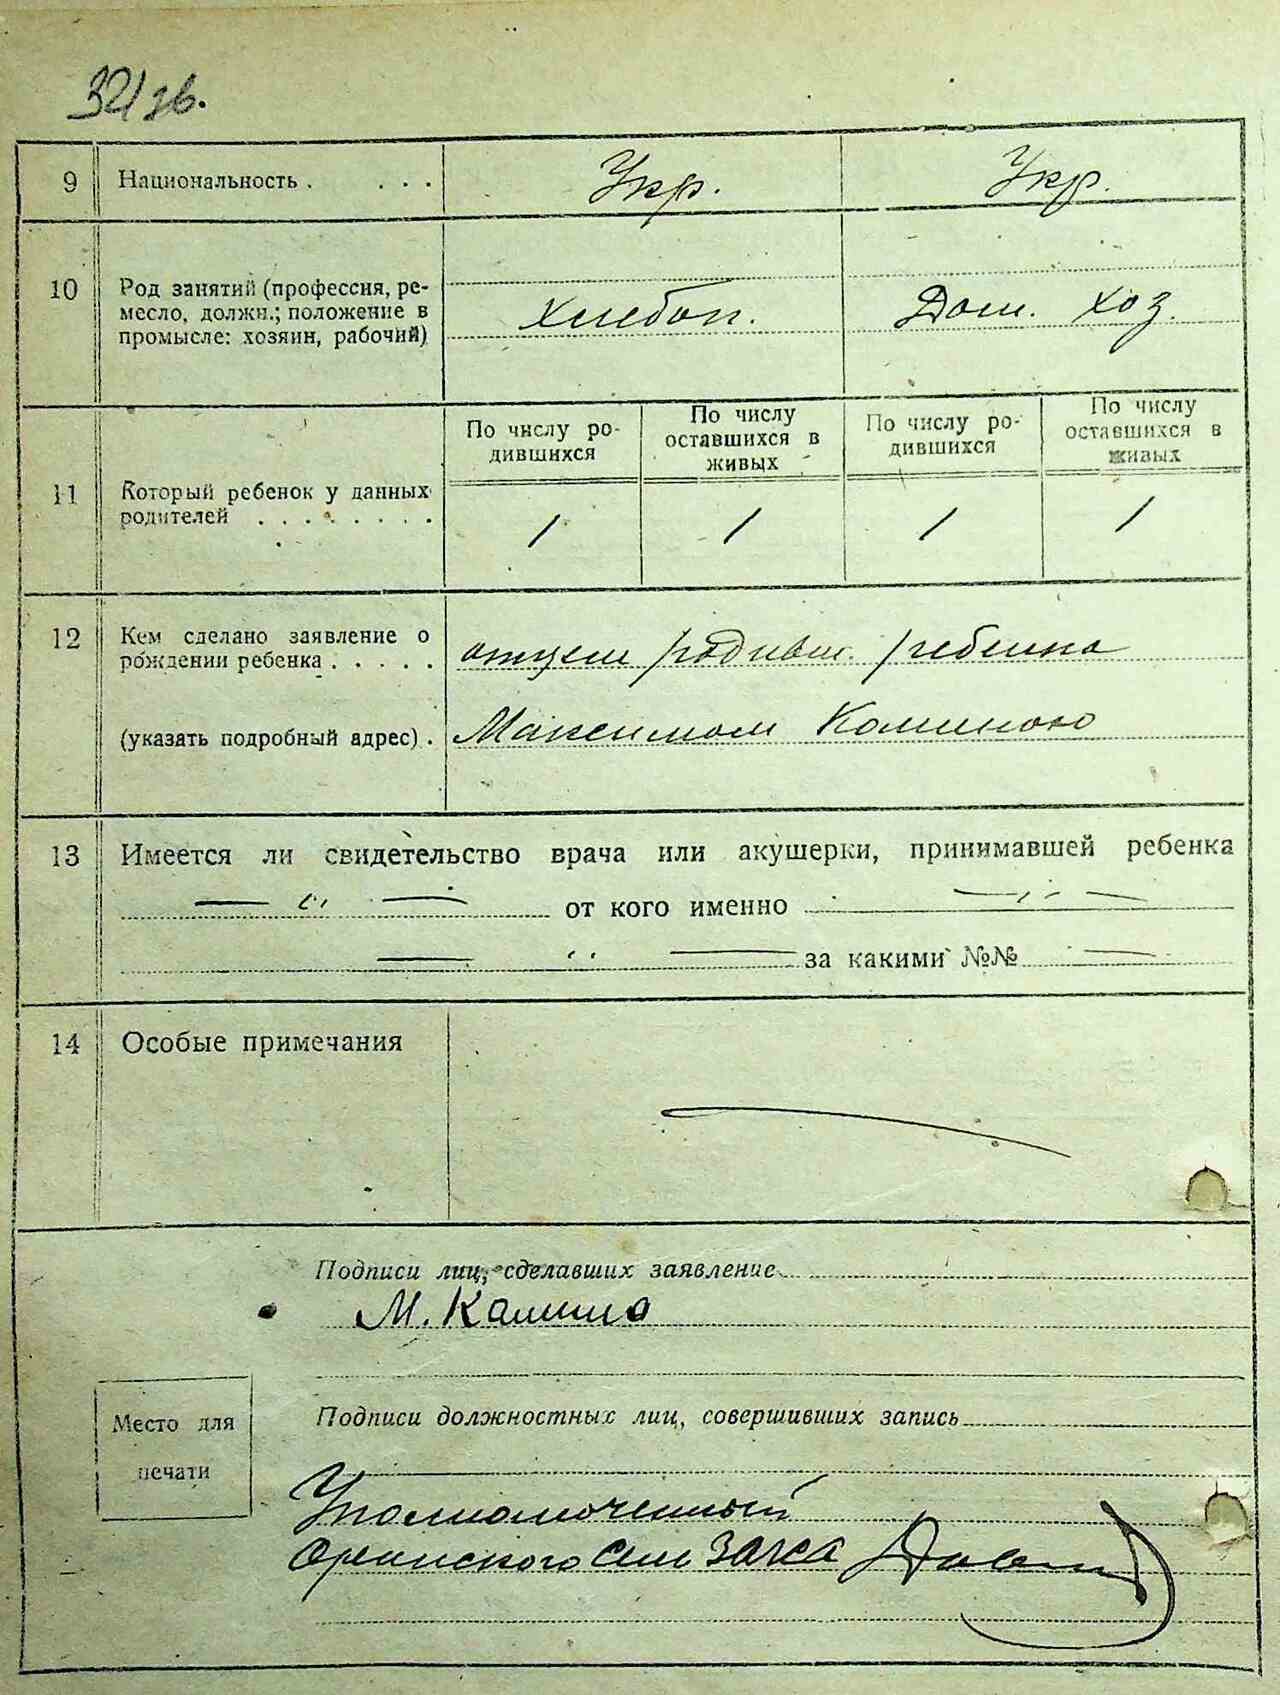 32/зв.
9 Национальность . . . . Укр. Укр.
10 Род занятий (профессия, ре-
месло, должн.; положение в
промысле: хозяин, рабочий)
хлебоп. Дом. хоз.
11 Который ребенок у данных
родителей . . . . . . . .
По числу ро-
дившихся
По числу
оставшихся в
живых
По числу ро-
дившихся
По числу
оставшихся в
живых
1 1 1 1
12 Кем сделано заявление о
рождении ребенка . . . . .
отцем родивш. ребенка
(указать подробный адрес) .
Максимом Коминою
13 Имеется ли свидетельство врача или акушерки, принимавшей ребенка
— " — от кого именно — " —
— " — за какими №№ —
14 Особые примечания
Подписи лиц, сделавших заявление
М. Камина
Место для
печати
Подписи должностных лиц, совершивших запись
Уполномоченный
сель ЗАГСА